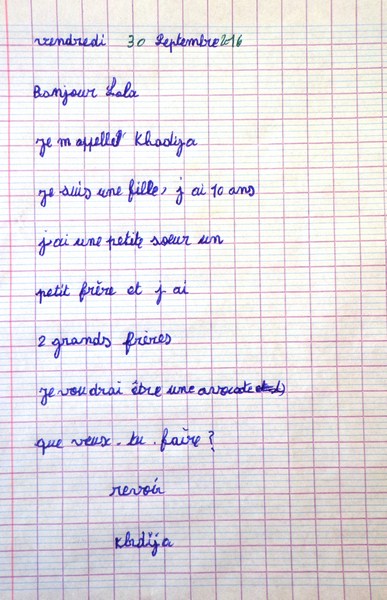 vendredi 30 septembre 2016
Bonjour Lola
je m'appelle Khadija
je suis une fille, j ai 10 ans
j'ai une petite soeur un
petit frère et j ai
2 grands frères
je voudrai être une avocate
que veux-tu-faire?
revoir
Khdija